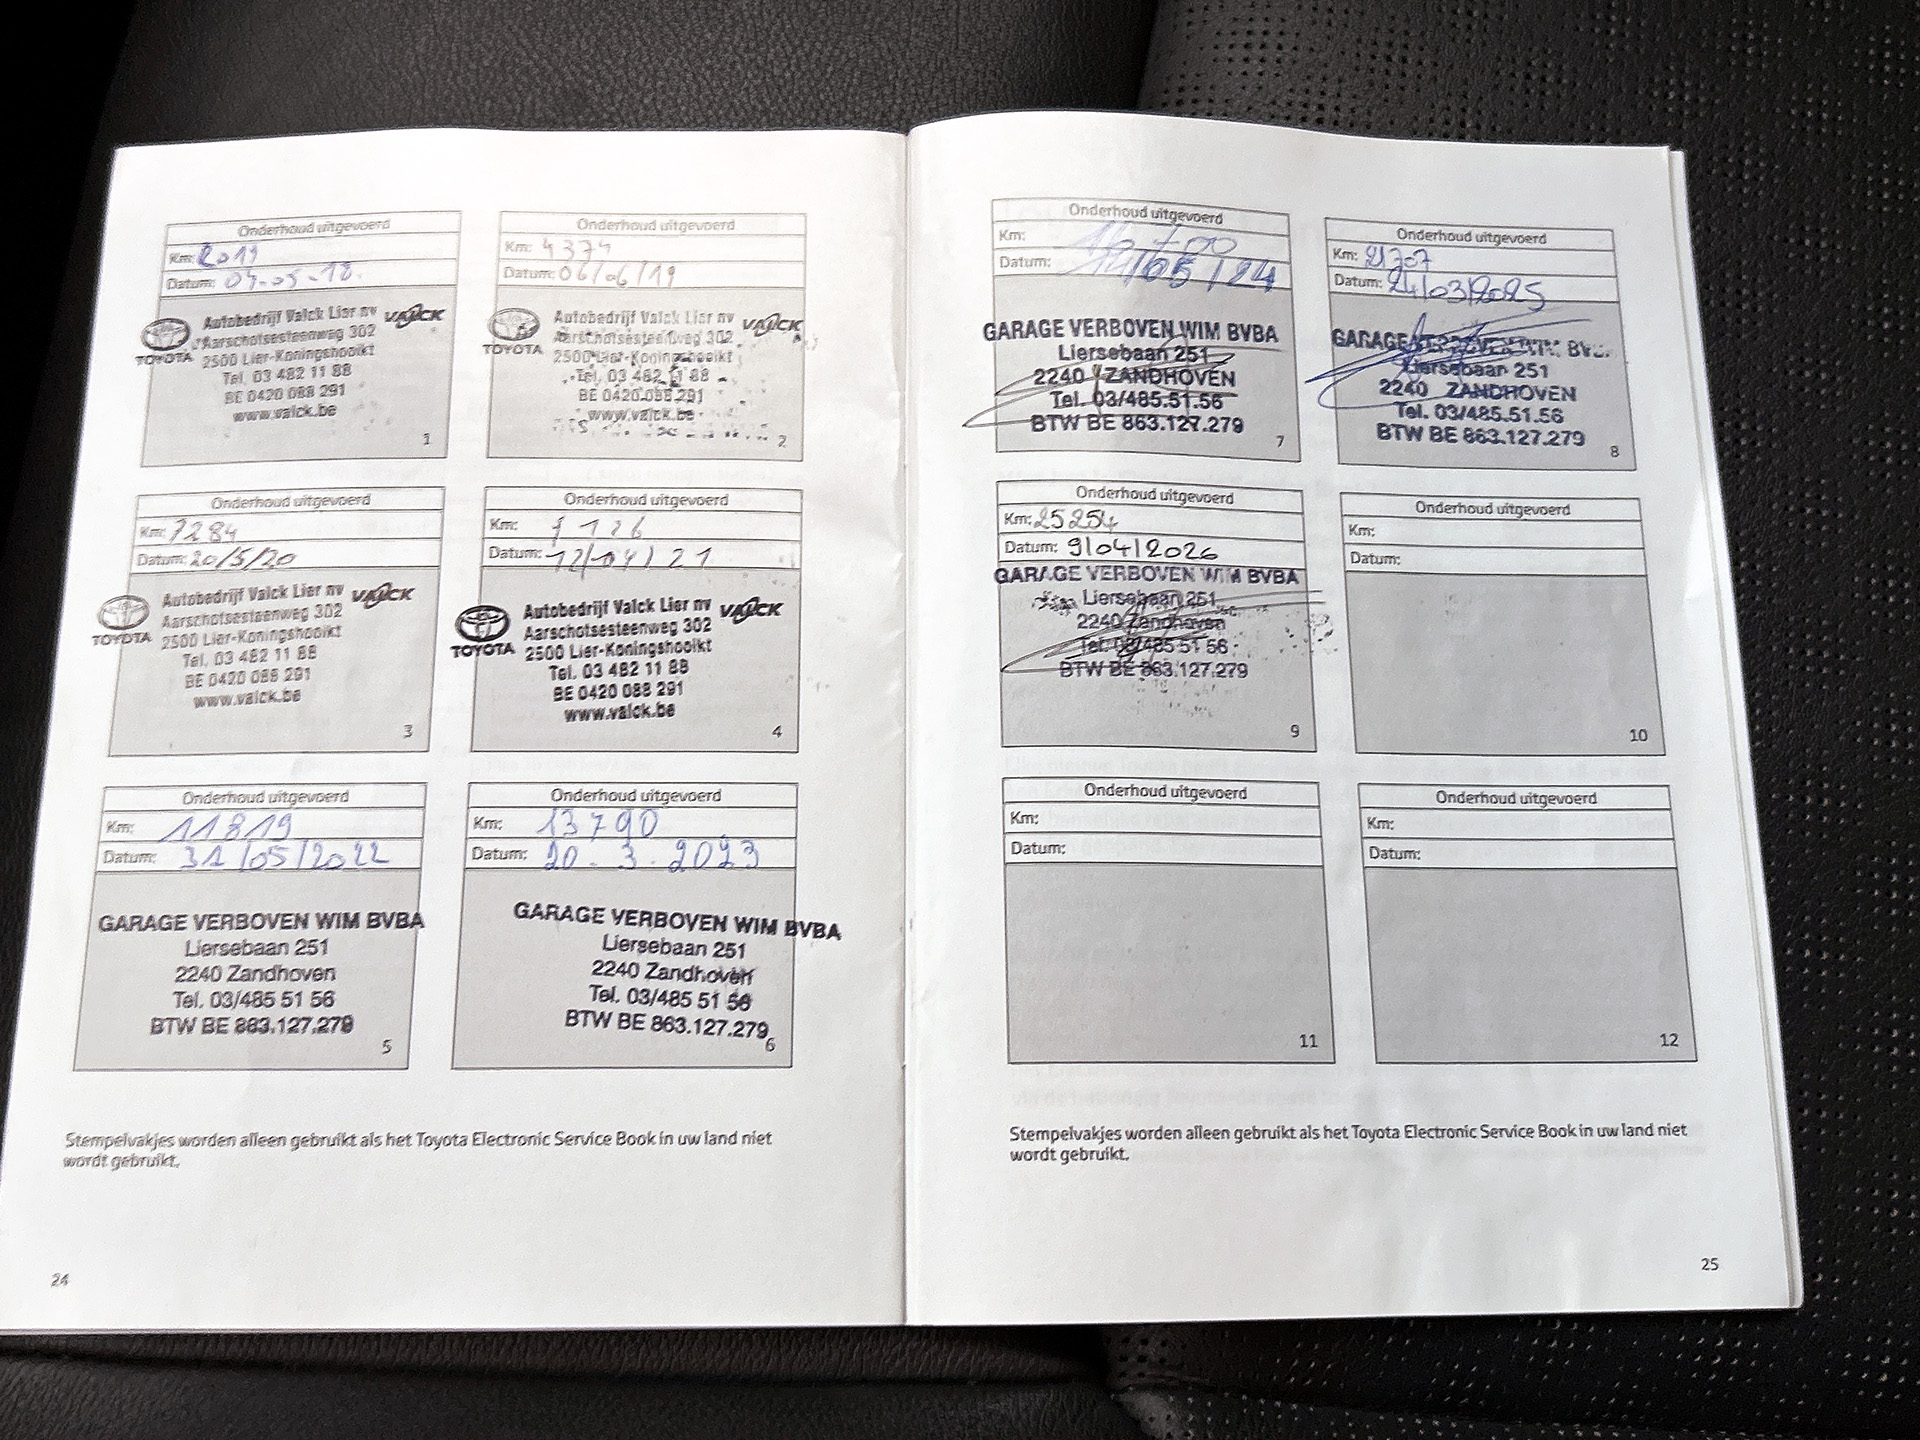 Onderhoud uitgevoerd
Km: 2019
Datum: 04-05-18.
TOYOTA
Autobedrijf Valck Lier nv VALCK
Aarschotsesteenweg 302
2500 Lier-Koningshooikt
Tel. 03 482 11 88
BE 0420 088 291
www.valck.be
1
Onderhoud uitgevoerd
Km: 4374
Datum: 06/06/19
TOYOTA
Autobedrijf Valck Lier nv VALCK
Aarschotsesteenweg 302
2500 Lier-Koningshooikt
Tel. 03 482 11 88
BE 0420 088 291
www.valck.be
2
Onderhoud uitgevoerd
Km: 7284
Datum: 20/5/20
TOYOTA
Autobedrijf Valck Lier nv VALCK
Aarschotsesteenweg 302
2500 Lier-Koningshooikt
Tel. 03 482 11 88
BE 0420 088 291
www.valck.be
3
Onderhoud uitgevoerd
Km:
Datum: 12/04/21
TOYOTA
Autobedrijf Valck Lier nv VALCK
Aarschotsesteenweg 302
2500 Lier-Koningshooikt
Tel. 03 482 11 88
BE 0420 088 291
www.valck.be
4
Onderhoud uitgevoerd
Km: 11819
Datum: 31/05/2022
GARAGE VERBOVEN WIM BVBA
Liersebaan 251
2240 Zandhoven
Tel. 03/485 51 56
BTW BE 863.127.279
5
Onderhoud uitgevoerd
Km: 13790
Datum: 20-3-2023
GARAGE VERBOVEN WIM BVBA
Liersebaan 251
2240 Zandhoven
Tel. 03/485 51 56
BTW BE 863.127.279
6
Stempelvakjes worden alleen gebruikt als het Toyota Electronic Service Book in uw land niet
wordt gebruikt.
24
Onderhoud uitgevoerd
Km:
Datum: 14/05/24
GARAGE VERBOVEN WIM BVBA
Liersebaan 251
2240 ZANDHOVEN
Tel. 03/485.51.56
BTW BE 863.127.279
7
Onderhoud uitgevoerd
Km: 21707
Datum: 24/03/2025
GARAGE VERBOVEN WIM BVBA
Liersebaan 251
2240 ZANDHOVEN
Tel. 03/485.51.56
BTW BE 863.127.279
8
Onderhoud uitgevoerd
Km: 25254
Datum: 9/04/2026
GARAGE VERBOVEN WIM BVBA
Liersebaan 251
2240 Zandhoven
Tel. 03/485 51 56
BTW BE 863.127.279
9
Onderhoud uitgevoerd
Km:
Datum:
10
Onderhoud uitgevoerd
Km:
Datum:
11
Onderhoud uitgevoerd
Km:
Datum:
12
Stempelvakjes worden alleen gebruikt als het Toyota Electronic Service Book in uw land niet
wordt gebruikt.
25